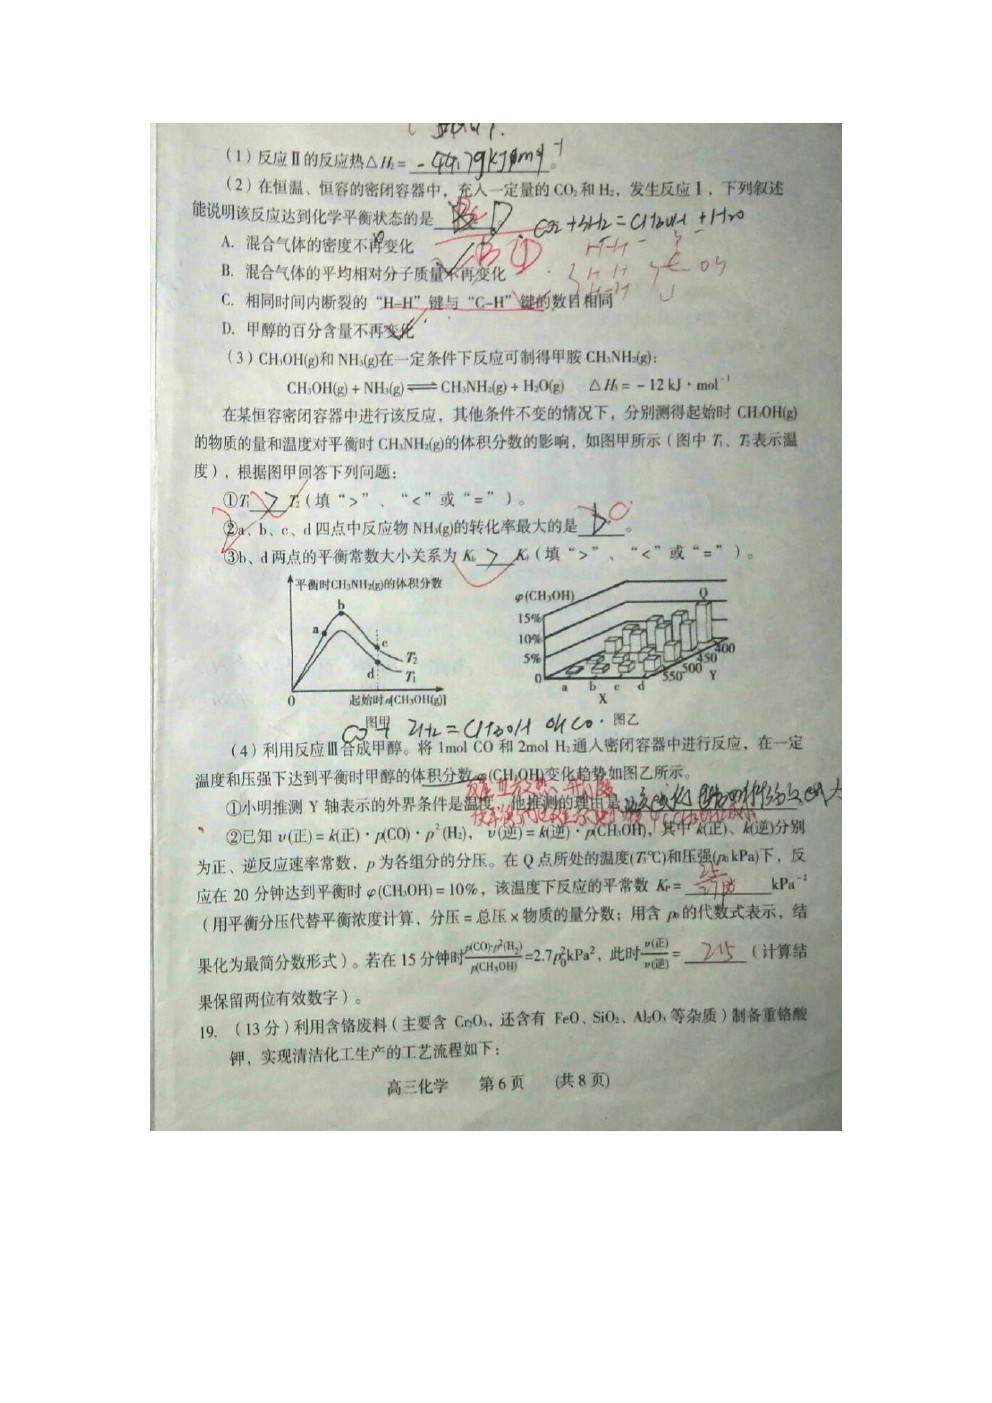 (1)反应Ⅱ的反应热△H₂= -44.79kJ·mol⁻¹。
(2)在恒温、恒容的密闭容器中，充入一定量的CO₂和H₂，发生反应Ⅰ，下列叙述
能说明该反应达到化学平衡状态的是 D。 CO₂+3H₂=CH₃OH+H₂O
A. 混合气体的密度不再变化 BD H-H
B. 混合气体的平均相对分子质量不再变化 H-H
C. 相同时间内断裂的“H-H”键与“C-H”键的数目相同 H-H
D. 甲醇的百分含量不再变化
(3)CH₃OH(g)和NH₃(g)在一定条件下反应可制得甲胺CH₃NH₂(g)：
CH₃OH(g)+NH₃(g)⇌CH₃NH₂(g)+H₂O(g) △H₃=-12 kJ·mol⁻¹
在某恒容密闭容器中进行该反应，其他条件不变的情况下，分别测得起始时CH₃OH(g)
的物质的量和温度对平衡时CH₃NH₂(g)的体积分数的影响，如图甲所示(图中T₁、T₂表示温
度)，根据图甲回答下列问题：
①T₁ > T₂(填“>”、“<”或“=”)。
②a、b、c、d四点中反应物NH₃(g)的转化率最大的是 b 。 C
③b、d两点的平衡常数大小关系为K_b > K_d(填“>”、“<”或“=”)。
平衡时CH₃NH₂(g)的体积分数
b
a
c
T₂
d
T₁
0
起始时n[CH₃OH(g)]
图甲
φ(CH₃OH)
Q
15%
10%
5%
0
400
450
500
550
Y
a b c d
X
图乙
CO+2H₂=CH₃OH
(4)利用反应Ⅲ合成甲醇。将1mol CO和2mol H₂通入密闭容器中进行反应，在一定
温度和压强下达到平衡时甲醇的体积分数φ(CH₃OH)变化趋势如图乙所示。
①小明推测Y轴表示的外界条件是温度，他推测的理由是
②已知v(正)=k(正)·p(CO)·p²(H₂)，v(逆)=k(逆)·p(CH₃OH)，其中k(正)、k(逆)分别
为正、逆反应速率常数，p为各组分的分压。在Q点所处的温度(T₃℃)和压强(p₀kPa)下，反
应在20分钟达到平衡时φ(CH₃OH)=10%，该温度下反应的平常数Kp= kPa⁻²
(用平衡分压代替平衡浓度计算，分压=总压×物质的量分数；用含p₀的代数式表示，结
果化为最简分数形式)。若在15分钟时p(CO)·p²(H₂)/p(CH₃OH)=2.7p₀²kPa²，此时v(正)/v(逆)= (计算结
果保留两位有效数字)。
19. (13分)利用含铬废料(主要含Cr₂O₃，还含有FeO、SiO₂、Al₂O₃等杂质)制备重铬酸
钾，实现清洁化工生产的工艺流程如下：
高三化学 第6页 (共8页)